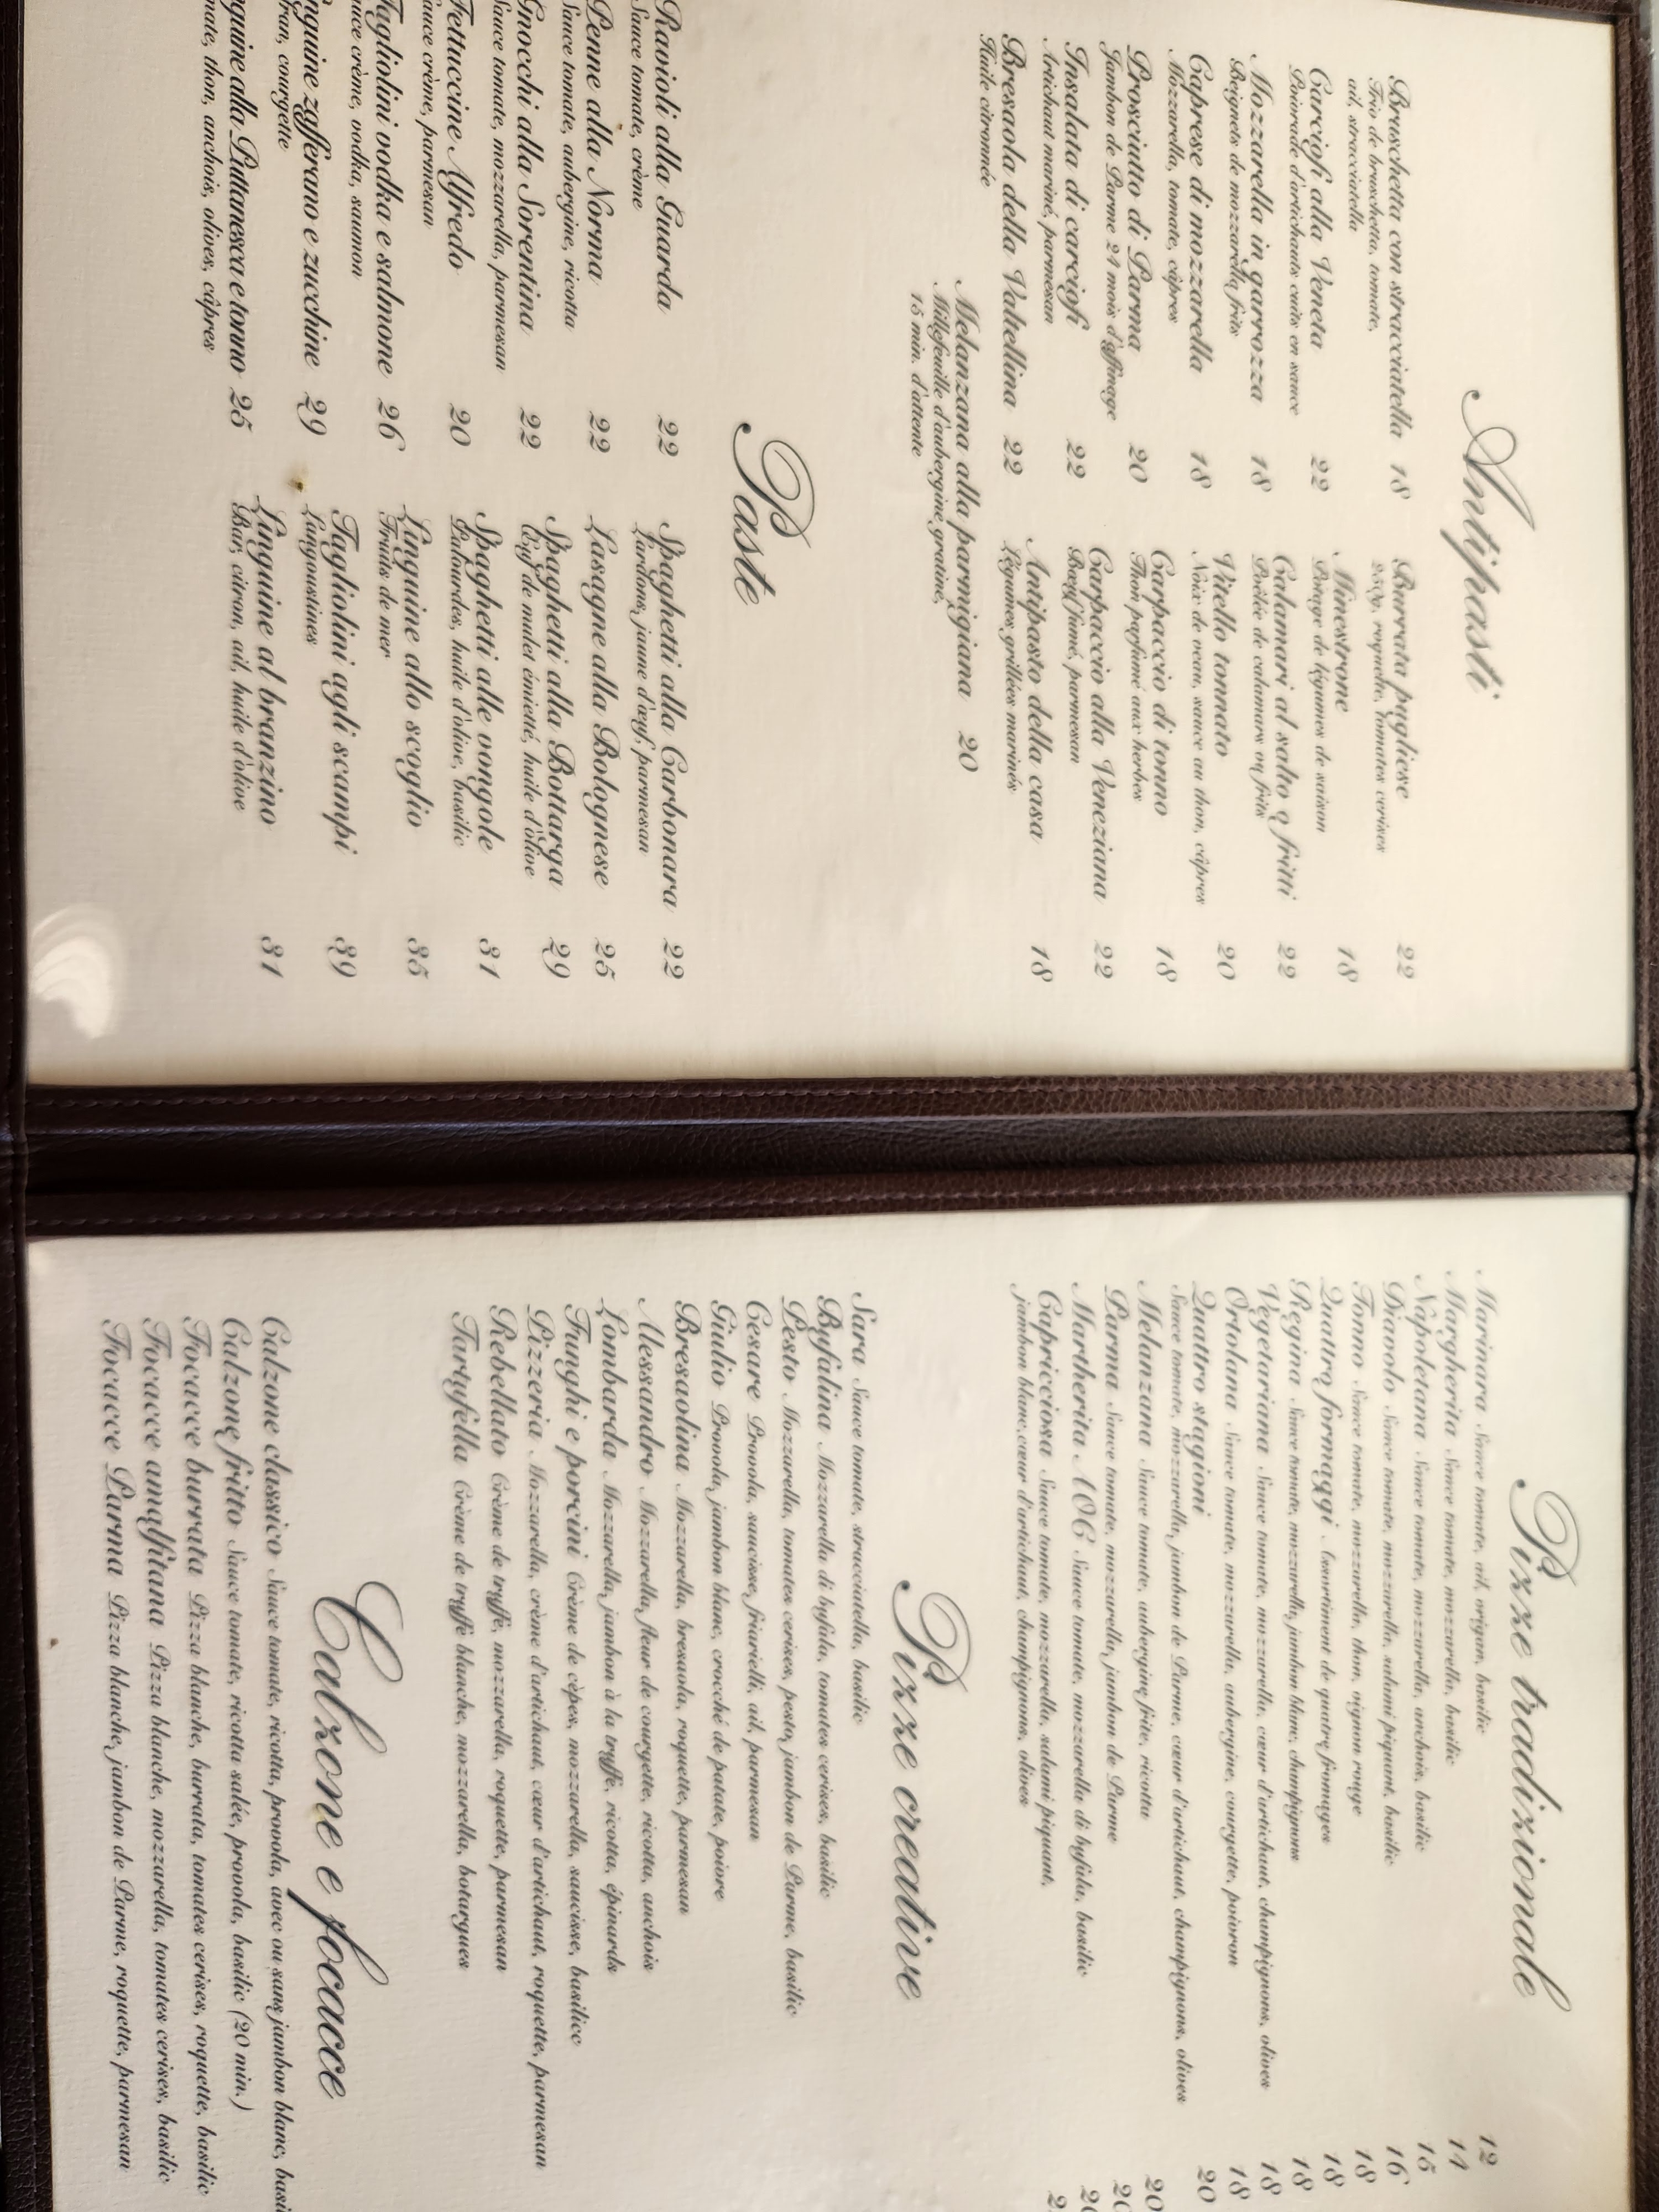 Antipasti
Bruschetta con stracciatella 18
Trio de bruschetta, tomate,
ail, stracciatella
Carciofi alla Veneta 22
Poivrade d'artichauts cuits en sauce
Mozzarella in garrozza 18
Beignets de mozzarella frits
Caprese di mozzarella 18
Mozzarella, tomate, câpres
Prosciutto di Parma 20
Jambon de Parme 24 mois d'affinage
Insalata di carciofi 22
Artichaut mariné, parmesan
Bresaola della Valtellina 22
Huile citronnée
Burrata pugliese 22
250gr, roquette, tomates cerises
Minestrone 18
Potage de légumes de saison
Calamari al salto o fritti 22
Poêlée de calamars ou frits
Vitello tonnato 20
Noix de veau, sauce au thon, câpres
Carpaccio di tonno 18
Thon parfumé aux herbes
Carpaccio alla Veneziana 22
Bœuf fumé, parmesan
Antipasto della casa 18
Légumes grillées marinés
Melanzana alla parmigiana 20
Millefeuille d'aubergine gratiné,
15 min. d'attente
Paste
Ravioli alla Guarda 22
Sauce tomate, crème
Penne alla Norma 22
Sauce tomate, aubergine, ricotta
Gnocchi alla Sorentina 22
Sauce tomate, mozzarella, parmesan
Fettuccine Alfredo 20
auce crème, parmesan
Tagliolini vodka e salmone 26
uce crème, vodka, saumon
nguine zafferano e zucchine 29
ran, courgette
guine alla Puttanesca e tonno 25
mate, thon, anchois, olives, câpres
Spaghetti alla Carbonara 22
Lardons, jaune d'œuf, parmesan
Lasagne alla Bolognese 25
Spaghetti alla Bottarga 29
Œuf de mulet émietté, huile d'olive
Spaghetti alle vongole 31
Palourdes, huile d'olive, basilic
Linguine allo scoglio 35
Fruits de mer
Tagliolini agli scampi 39
Langoustines
Linguine al branzino 31
Bar, citron, ail, huile d'olive
Pizze tradizionale
Marinara Sauce tomate, ail, origan, basilic 12
Margherita Sauce tomate, mozzarella, basilic 14
Napoletana Sauce tomate, mozzarella, anchois, basilic 15
Diavolo Sauce tomate, mozzarella, salami piquant, basilic 16
Tonno Sauce tomate, mozzarella, thon, oignon rouge 18
Quattro formaggi Assortiment de quatre fromages 18
Regina Sauce tomate, mozzarella, jambon blanc, champignons 18
Vegetariana Sauce tomate, mozzarella, cœur d'artichaut, champignons, olives 18
Ortolana Sauce tomate, mozzarella, aubergine, courgette, poivron 18
Quattro stagioni 20
Sauce tomate, mozzarella, jambon de Parme, cœur d'artichaut, champignons, olives
Melanzana Sauce tomate, aubergine frite, ricotta 20
Parma Sauce tomate, mozzarella, jambon de Parme
Martherita AOC Sauce tomate, mozzarella di bufala, basilic
Capricciosa Sauce tomate, mozzarella, salami piquant,
jambon blanc, cœur d'artichaut, champignons, olives
Pizze creative
Sara Sauce tomate, stracciatella, basilic
Bufalina Mozzarella di bufala, tomates cerises, basilic
Pesto Mozzarella, tomates cerises, pesto, jambon de Parme, basilic
Cesare Provola, saucisse, friarielli, ail, parmesan
Giulio Provola, jambon blanc, crocché de patate, poivre
Bresaolina Mozzarella, bresaola, roquette, parmesan
Alessandro Mozzarella, fleur de courgette, ricotta, anchois
Lombarda Mozzarella, jambon à la truffe, ricotta, épinards
Funghi e porcini Crème de cèpes, mozzarella, saucisse, basilico
Pizzeria Mozzarella, crème d'artichaut, cœur d'artichaut, roquette, parmesan
Rebellato Crème de truffe, mozzarella, roquette, parmesan
Tartufella Crème de truffe blanche, mozzarella, botargues
Calzone e focacce
Calzone classico Sauce tomate, ricotta, provola, avec ou sans jambon blanc, basi
Calzone fritto Sauce tomate, ricotta salée, provola, basilic (20 min.)
Focacce burrata Pizza blanche, burrata, tomates cerises, roquette, basilic
Focacce amalfitana Pizza blanche, mozzarella, tomates cerises, basilic
Focacce Parma Pizza blanche, jambon de Parme, roquette, parmesan